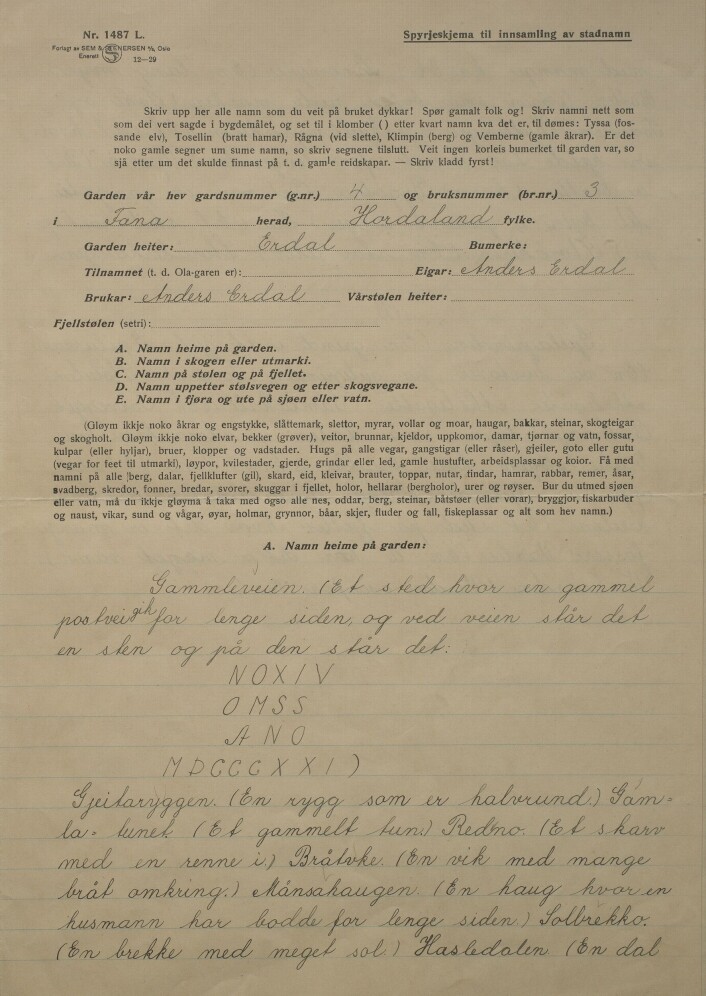 Nr. 1487 L.
Forlagt av SEM & STENERSEN A/S, Oslo
Enerett S 12—29
Spyrjeskjema til innsamling av stadnamn
Skriv upp her alle namn som du veit på bruket dykkar! Spør gamalt folk og! Skriv namni nett som
som dei vert sagde i bygdemålet, og set til i klomber ( ) etter kvart namn kva det er, til dømes: Tyssa (fos-
sande elv), Tosellin (bratt hamar), Rägna (vid slette), Klimpin (berg) og Vemberne (gamle åkrar). Er det
noko gamle segner um sume namn, so skriv segnene tilslutt. Veit ingen korleis bumerket til garden var, so
sjå etter um det skulde finnast på t. d. gamle reidskapar. — Skriv kladd fyrst!
Garden vår hev gardsnummer (g.nr.) 4 og bruksnummer (br.nr.) 3
i Fana herad, Hordaland fylke.
Garden heiter: Erdal Bumerke:
Tilnamnet (t. d. Ola-garen er): Eigar: Anders Erdal
Brukar: Anders Erdal Vårstølen heiter:
Fjellstølen (setri):
A. Namn heime på garden.
B. Namn i skogen eller utmarki.
C. Namn på stølen og på fjellet.
D. Namn uppetter stølsvegen og etter skogsvegane.
E. Namn i fjøra og ute på sjøen eller vatn.
(Gløym ikkje noko åkrar og engstykke, slåttemark, slettor, myrar, vollar og moar, haugar, bakkar, steinar, skogteigar
og skogholt. Gløym ikkje noko elvar, bekker (grøver), veitor, brunnar, kjeldor, uppkomor, damar, tjørnar og vatn, fossar,
kulpar (eller hyljar), bruer, klopper og vadstader. Hugs på alle vegar, gangstigar (eller råser), gjeiler, goto eller gutu
(vegar for feet til utmarki), løypor, kvilestader, gjerde, grindar eller led, gamle hustufter, arbeidsplassar og koior. Få med
namni på alle berg, dalar, fjellklufter (gil), skard, eid, kleivar, brauter, toppar, nutar, tindar, hamrar, rabbar, remer, åsar,
svadberg, skredor, fonner, bredar, svorer, skuggar i fjellet, holor, hellarar (bergholor), urer og røyser. Bur du utmed sjøen
eller vatn, må du ikkje gløyma å taka med ogso alle nes, oddar, berg, steinar, båtstøer (eller vorar), bryggjor, fiskarbuder
og naust, vikar, sund og vågar, øyar, holmar, grynnor, båar, skjer, fluder og fall, fiskeplassar og alt som hev namn.)
A. Namn heime på garden:
Gammleveien. (Et sted hvor en gammel
postvei gik for lenge siden, og ved veien står det
en sten og på den står det:
NOXIV
OMSS
ANO
MDCCCXXI)
Gjeitaryggen. (En rygg som er halvrund.) Gam=
la=tunet. (Et gammelt tun.) Redno. (Et skarv
med en renne i.) Bråtvke. (En vik med mange
bråt omkring.) Månsahaugen. (En haug hvor en
husmann har bodde for lenge siden.) Solbrekko.
(En brekke med meget sol.) Hasledalen. (En dal